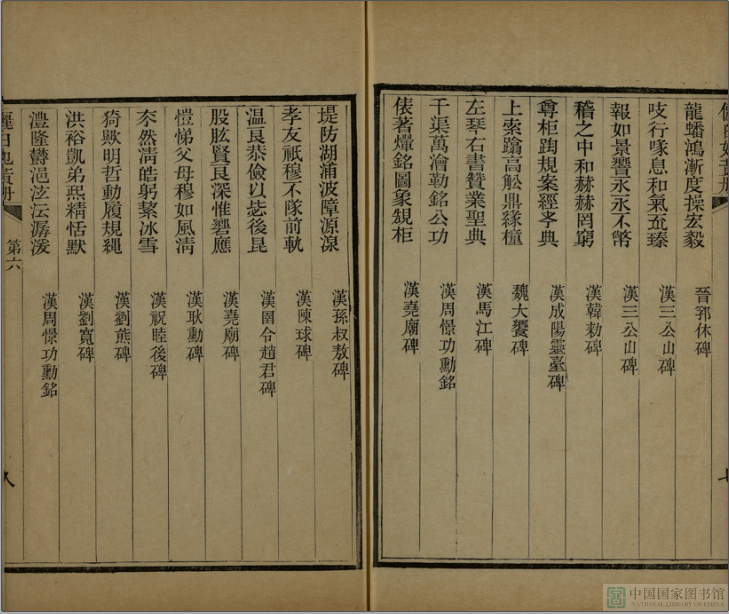 龍蟠鴻漸度操宏毅 晉郭休碑
吱行喙息和氣㐬臻 漢三公山碑
報如景響永永不幣 漢三公山碑
稽之中和赫赫罔窮 漢韓勑碑
尊柜蹈規案經㝊典 漢成陽靈臺碑
上索蹹高觓鼎緣橦 魏大饗碑
左琴右書贊業聖典 漢馬江碑
千渠萬澮勒銘公功 漢周憬功勳銘
俵著燀銘圖象䂓柜 漢堯廟碑
堤防湖浦波障源湶 漢孫叔敖碑
孝友祇穆不隊前軌 漢陳球碑
温良恭儉以毖後昆 漢圉令趙君碑
股肱賢良深惟礐應 漢堯廟碑
愷悌父母穆如風淸 漢耿勳碑
夳然淸皓躬絜冰雪 漢祝睦後碑
猗歟明哲動履規䋲 漢劉熊碑
洪裕凱弟熙精恬默 漢劉寬碑
灃隆鬱浥泫沄潺湲 漢周憬功勳銘
第六
八
中国国家图书馆
NATIONAL LIBRARY OF CHINA